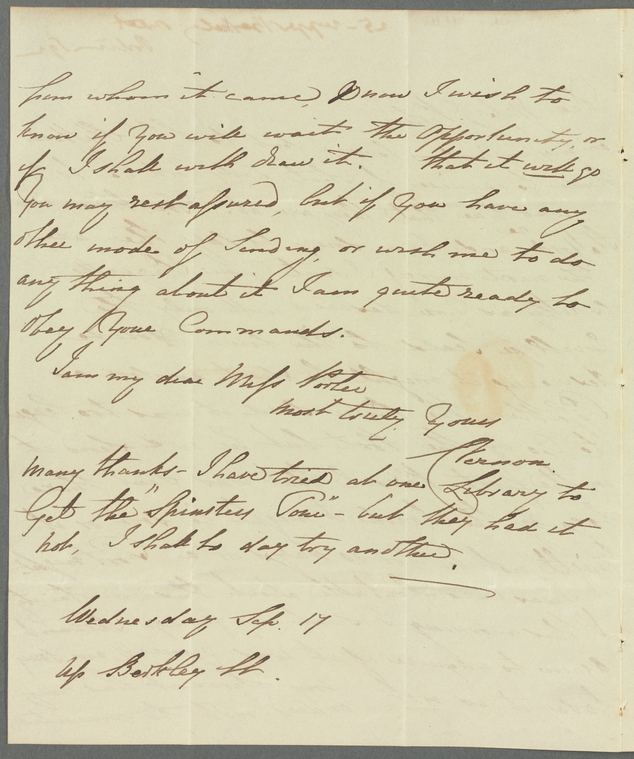 him whom it came, now I wish to
know if you will wait the opportunity, or
if I shall with draw it. that it will go
you may rest assured, but if you have any
other mode of sending, or wish me to do
any thing about it I am quite ready to
obey your Commands.
I am my dear Miss Porter
most truly Yours
CVernon.
many thanks - I have tried at one Library to
Get the "Spinsters Tour" - but they had it
not, I shall to day try another.
Wednesday Sep. 17
Up Berkley St.